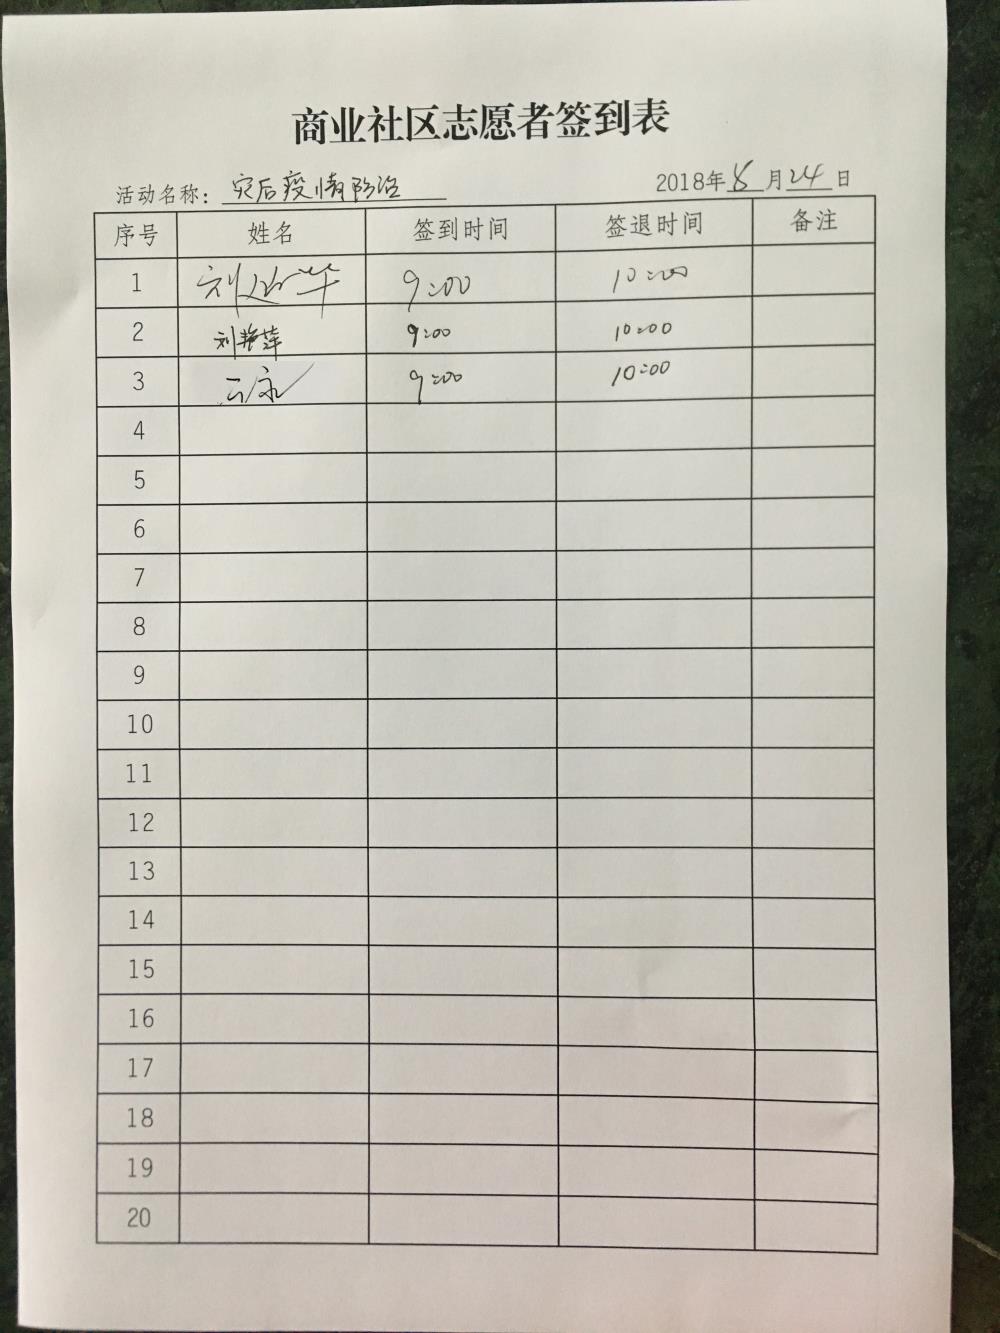 商业社区志愿者签到表
活动名称：灾后疫情防治 2018年8月24日
序号 姓名 签到时间 签退时间 备注
1 刘 华 9:00 10:00
2 刘艳萍 9:00 10:00
3 9:00 10:00
4
5
6
7
8
9
10
11
12
13
14
15
16
17
18
19
20